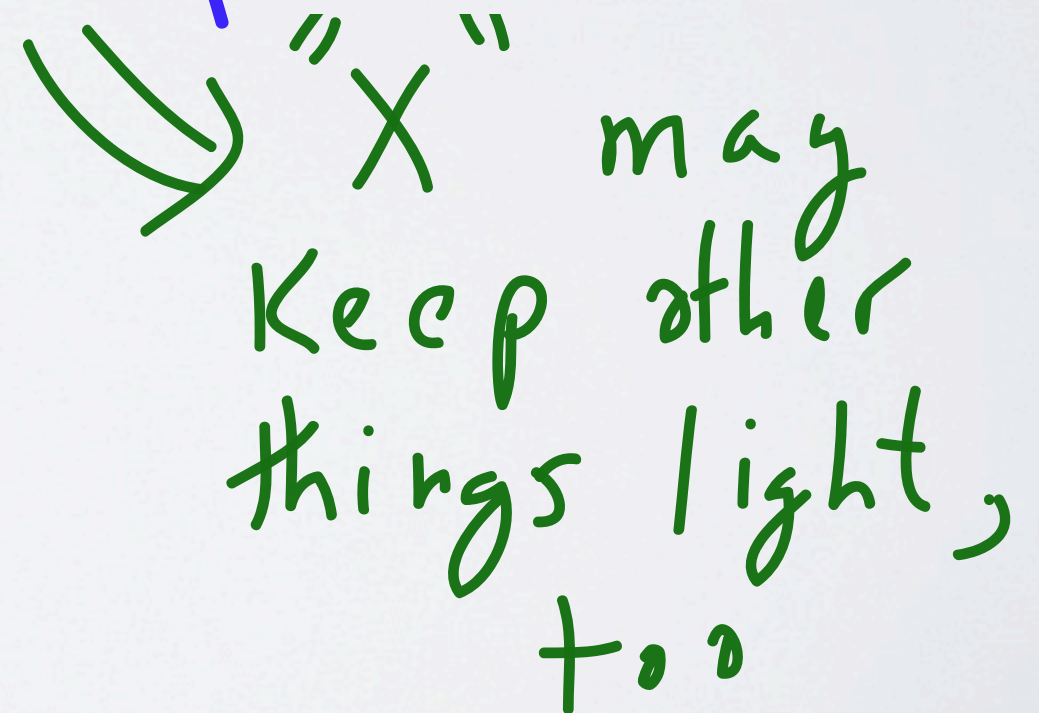 ⇒ "X" may
Keep other
things light,
too